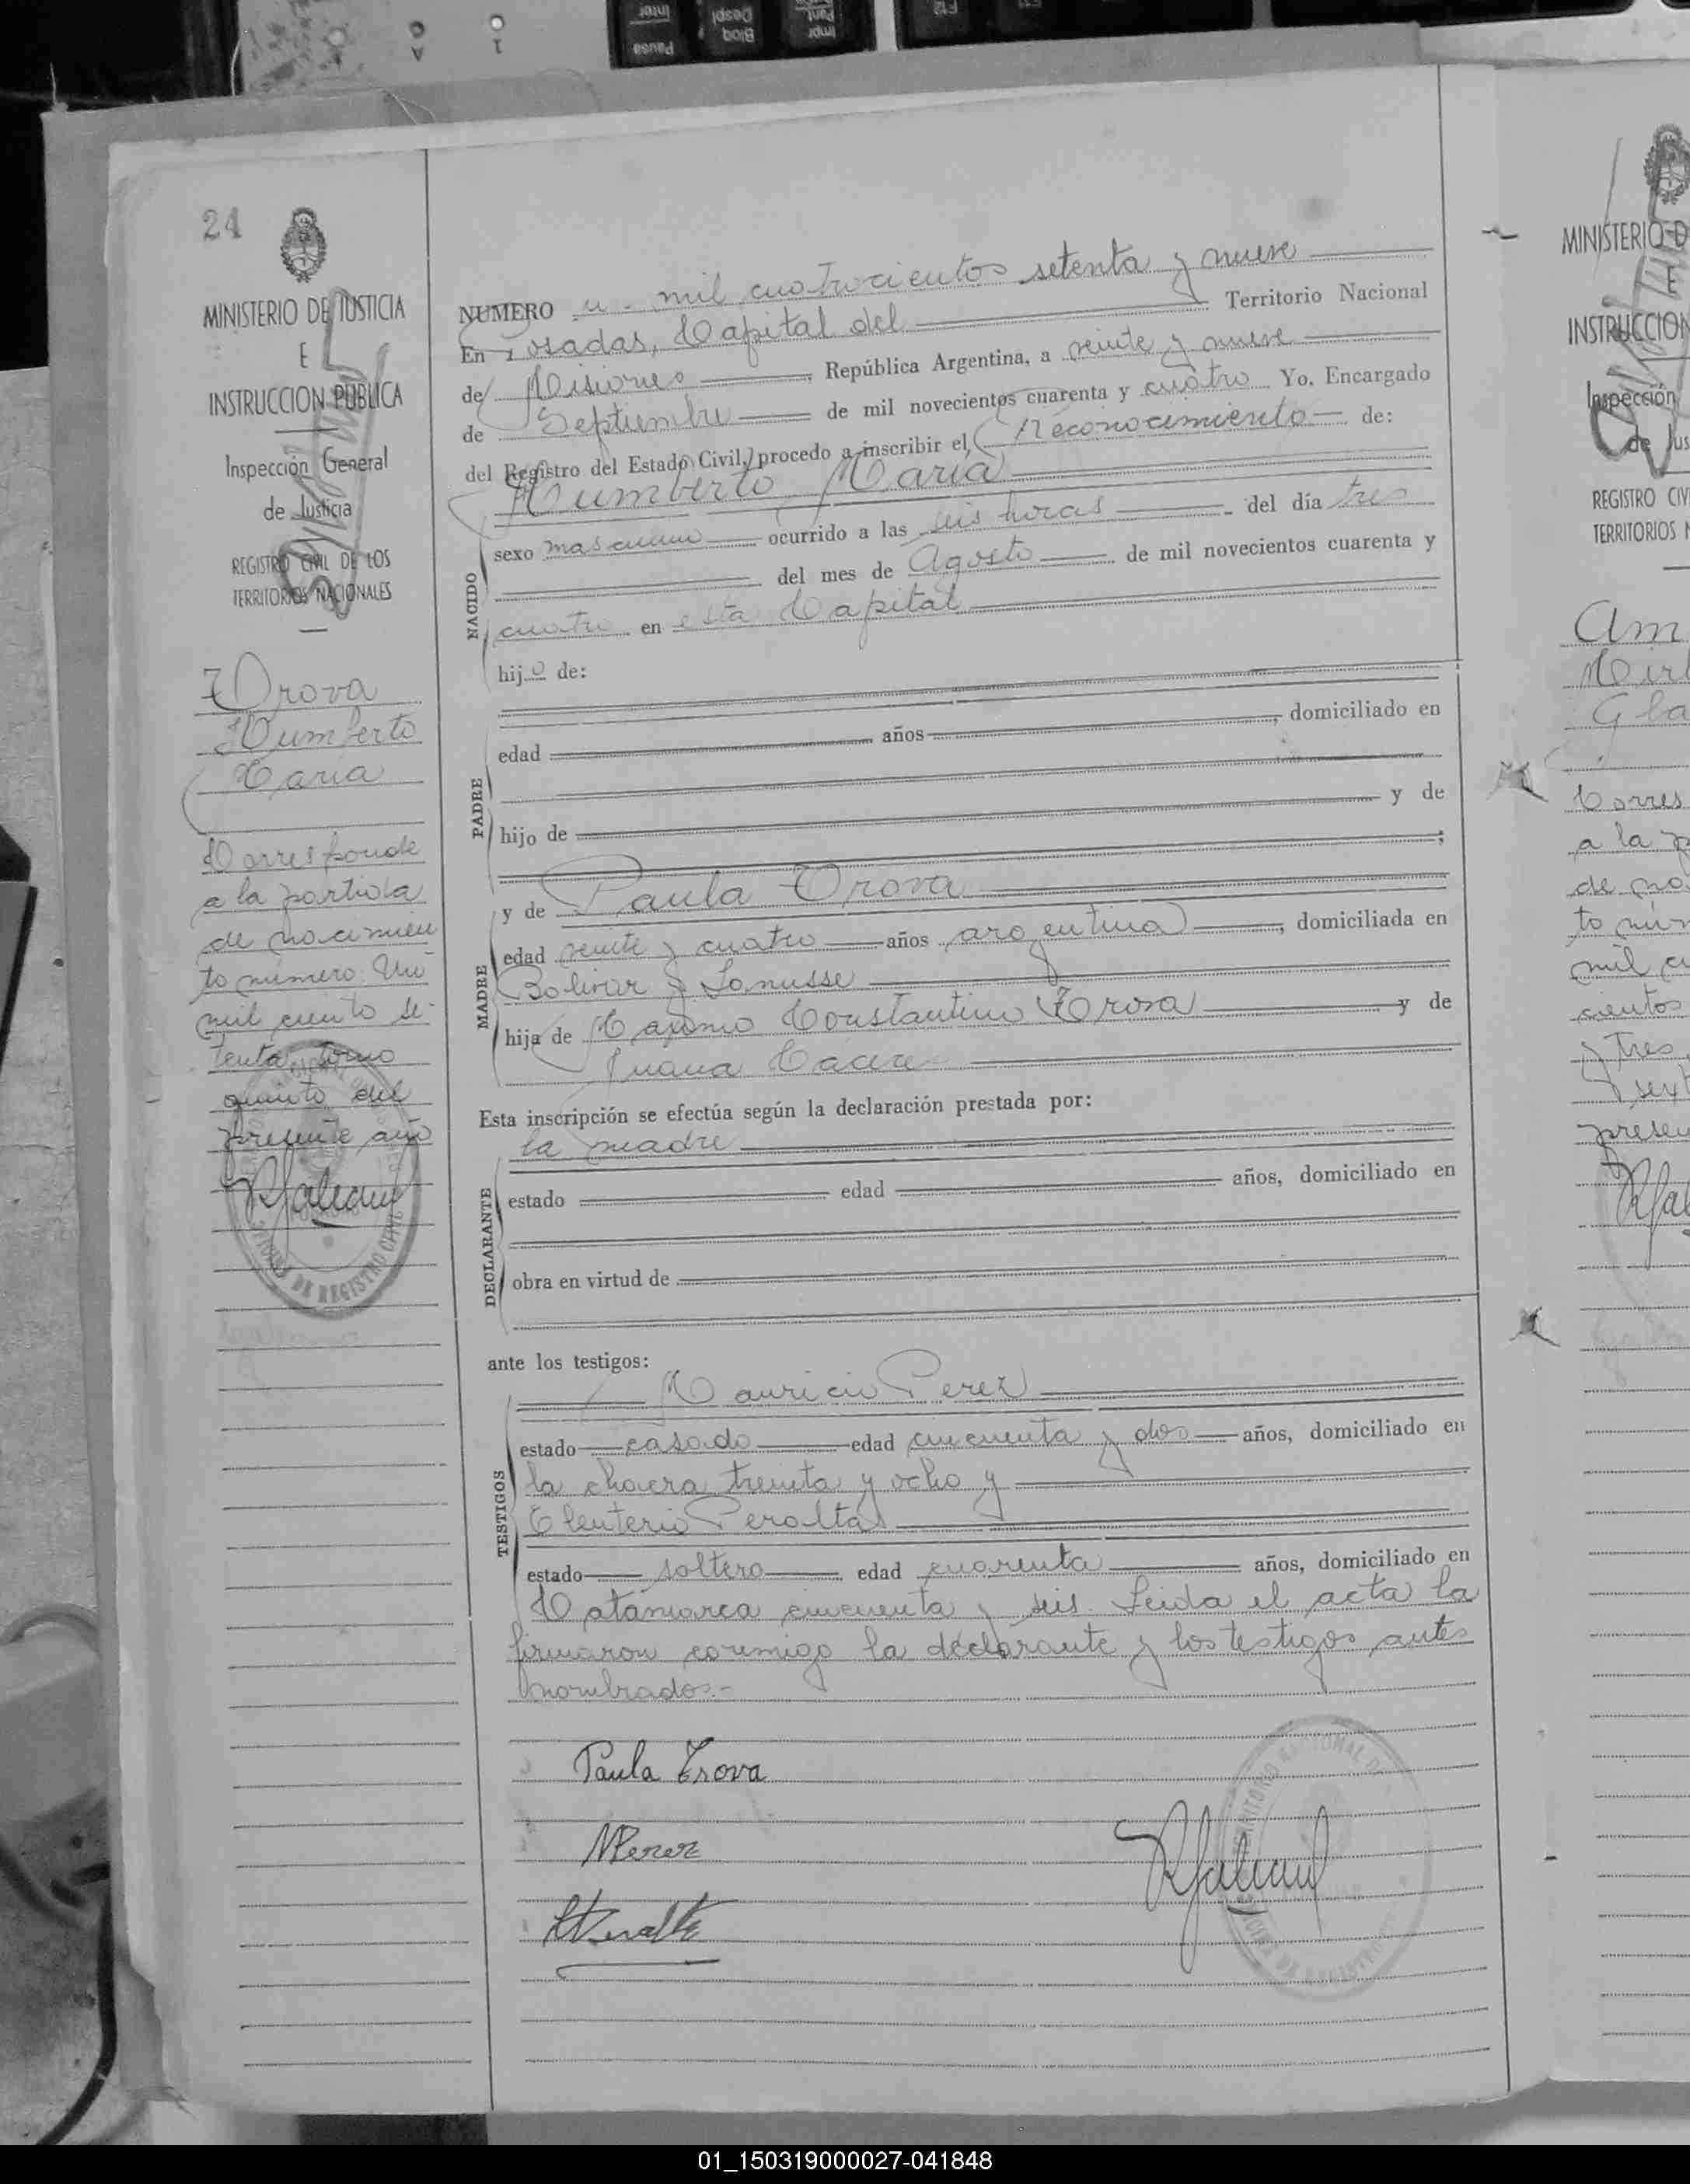 24
MINISTERIO DE JUSTICIA
E
INSTRUCCION PUBLICA
Inspección General
de Justicia
REGISTRO CIVIL DE LOS
TERRITORIOS NACIONALES
Trova
Humberto
Maria
Corresponde
a la partida
de nacimien
to número: Un
mil ciento se-
tenta, tomo
quinto del
presente año
NUMERO u- mil cuatrocientos setenta y nueve
En Posadas, Capital del Territorio Nacional
de Misiones, República Argentina, a veinte y nueve
de Septiembre de mil novecientos cuarenta y cuatro Yo, Encargado
del Registro del Estado Civil, procedo a inscribir el Reconocimiento de:
Humberto Maria
NACIDO
sexo masculino ocurrido a las seis horas del día tres
del mes de Agosto de mil novecientos cuarenta y
cuatro en esta Capital
hijo de:
PADRE
edad años, domiciliado en
hijo de y de
;
MADRE
y de Paula Trova
edad veinte y cuatro años argentina, domiciliada en
Bolivar y Lanusse
hija de Maximo Constantino Trova y de
Juana
Esta inscripción se efectúa según la declaración prestada por:
la madre
DECLARANTE
estado edad años, domiciliado en
obra en virtud de
ante los testigos:
TESTIGOS
Mauricio Perez
estado casado edad cincuenta y dos años, domiciliado en
la chacra treinta y ocho y
Eleuterio Peralta
estado soltero edad cuarenta años, domiciliado en
Catamarca cincuenta y seis. Leida el acta la
firmaron conmigo la declarante y los testigos antes
nombrados.-
Paula Trova
MPerez
OFICINA DE REGISTRO CIVIL
MINISTERIO D
E
INSTRUCCION
Inspección
de Jus
REGISTRO CIV
TERRITORIOS N
Am
Mirt
Gla
Corres
a la p
de na
to núm
mil cu
cientos
y tres
sext
presen
01_150319000027-041848